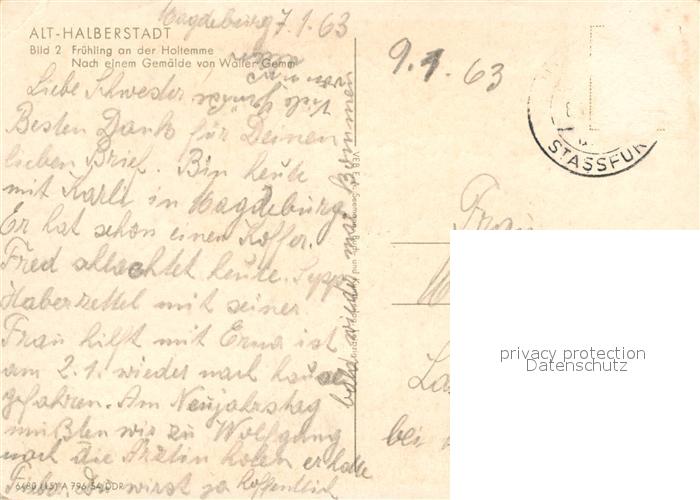 Magdeburg 7.1.63
ALT-HALBERSTADT
Bild 2 Frühling an der Holtemme
Nach einem Gemälde von Walter Gemm
Liebe Schwester!
Besten Dank für Deinen
lieben Brief. Bin heute
mit Karli in Magdeburg.
Er hat schon einen Koffer.
Fred schlachtet heute. Sepp
Haberzettel mit seiner
Frau hilft mit Erna ist
am 2.1. wieder nach hause
gefahren. Am Neujahrstag
mußten wir zu Wolfgang
nach die Ärztin holen er hatte
Fieber. Du wirst ja hoffentlich
bald wieder mal kommen
Viele Grüße
von
6480 (15) A 796/54/DDR
9.1.63
STASSFUR
Frau
bei
privacy protection
Datenschutz